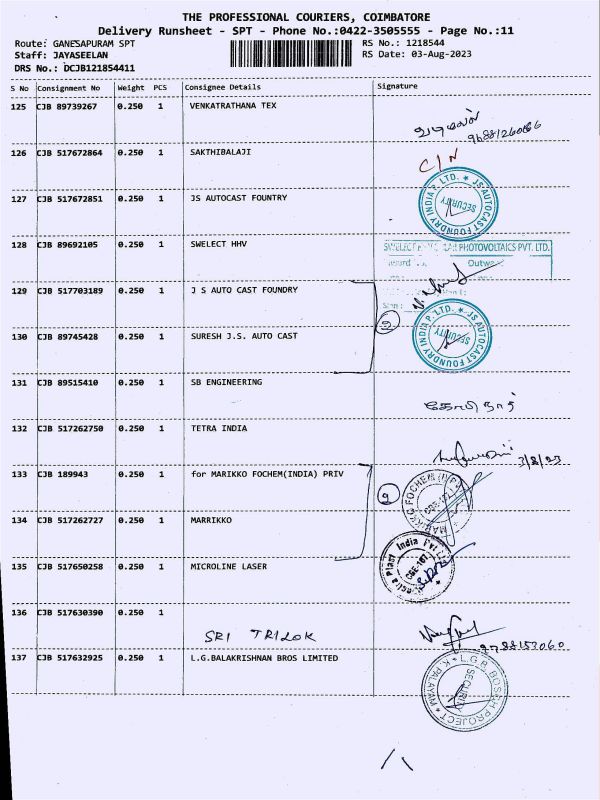 THE PROFESSIONAL COURIERS, COIMBATORE
Delivery Runsheet - SPT - Phone No.:0422-3505555 - Page No.:11
Route: GANESAPURAM SPT RS No.: 1218544
Staff: JAYASEELAN RS Date: 03-Aug-2023
DRS No.: DCJB121854411
S No Consignment No Weight PCS Consignee Details Signature
125 CJB 89739267 0.250 1 VENKATRATHANA TEX
9688126066
126 CJB 517672864 0.250 1 SAKTHIBALAJI
C/N
127 CJB 517672851 0.250 1 JS AUTOCAST FOUNTRY
JS AUTOCAST FOUNDRY INDIA P. LTD. SECURITY
128 CJB 89692105 0.250 1 SWELECT HHV
SWELECT PHOTOVOLTAICS PVT. LTD.
Outwa
129 CJB 517703189 0.250 1 J S AUTO CAST FOUNDRY
130 CJB 89745428 0.250 1 SURESH J.S. AUTO CAST
JS AUTOCAST FOUNDRY INDIA P. LTD. SECURITY
131 CJB 89515410 0.250 1 SB ENGINEERING
132 CJB 517262750 0.250 1 TETRA INDIA
3/8/23
133 CJB 189943 0.250 1 for MARIKKO FOCHEM(INDIA) PRIV
134 CJB 517262727 0.250 1 MARRIKKO
135 CJB 517650258 0.250 1 MICROLINE LASER
Plast India Pvt
136 CJB 517630390 0.250 1
SRI TRILOK
9788153060
137 CJB 517632925 0.250 1 L.G.BALAKRISHNAN BROS LIMITED
L.G.B. BOSCH PROJECT K PALAYAM SECURITY